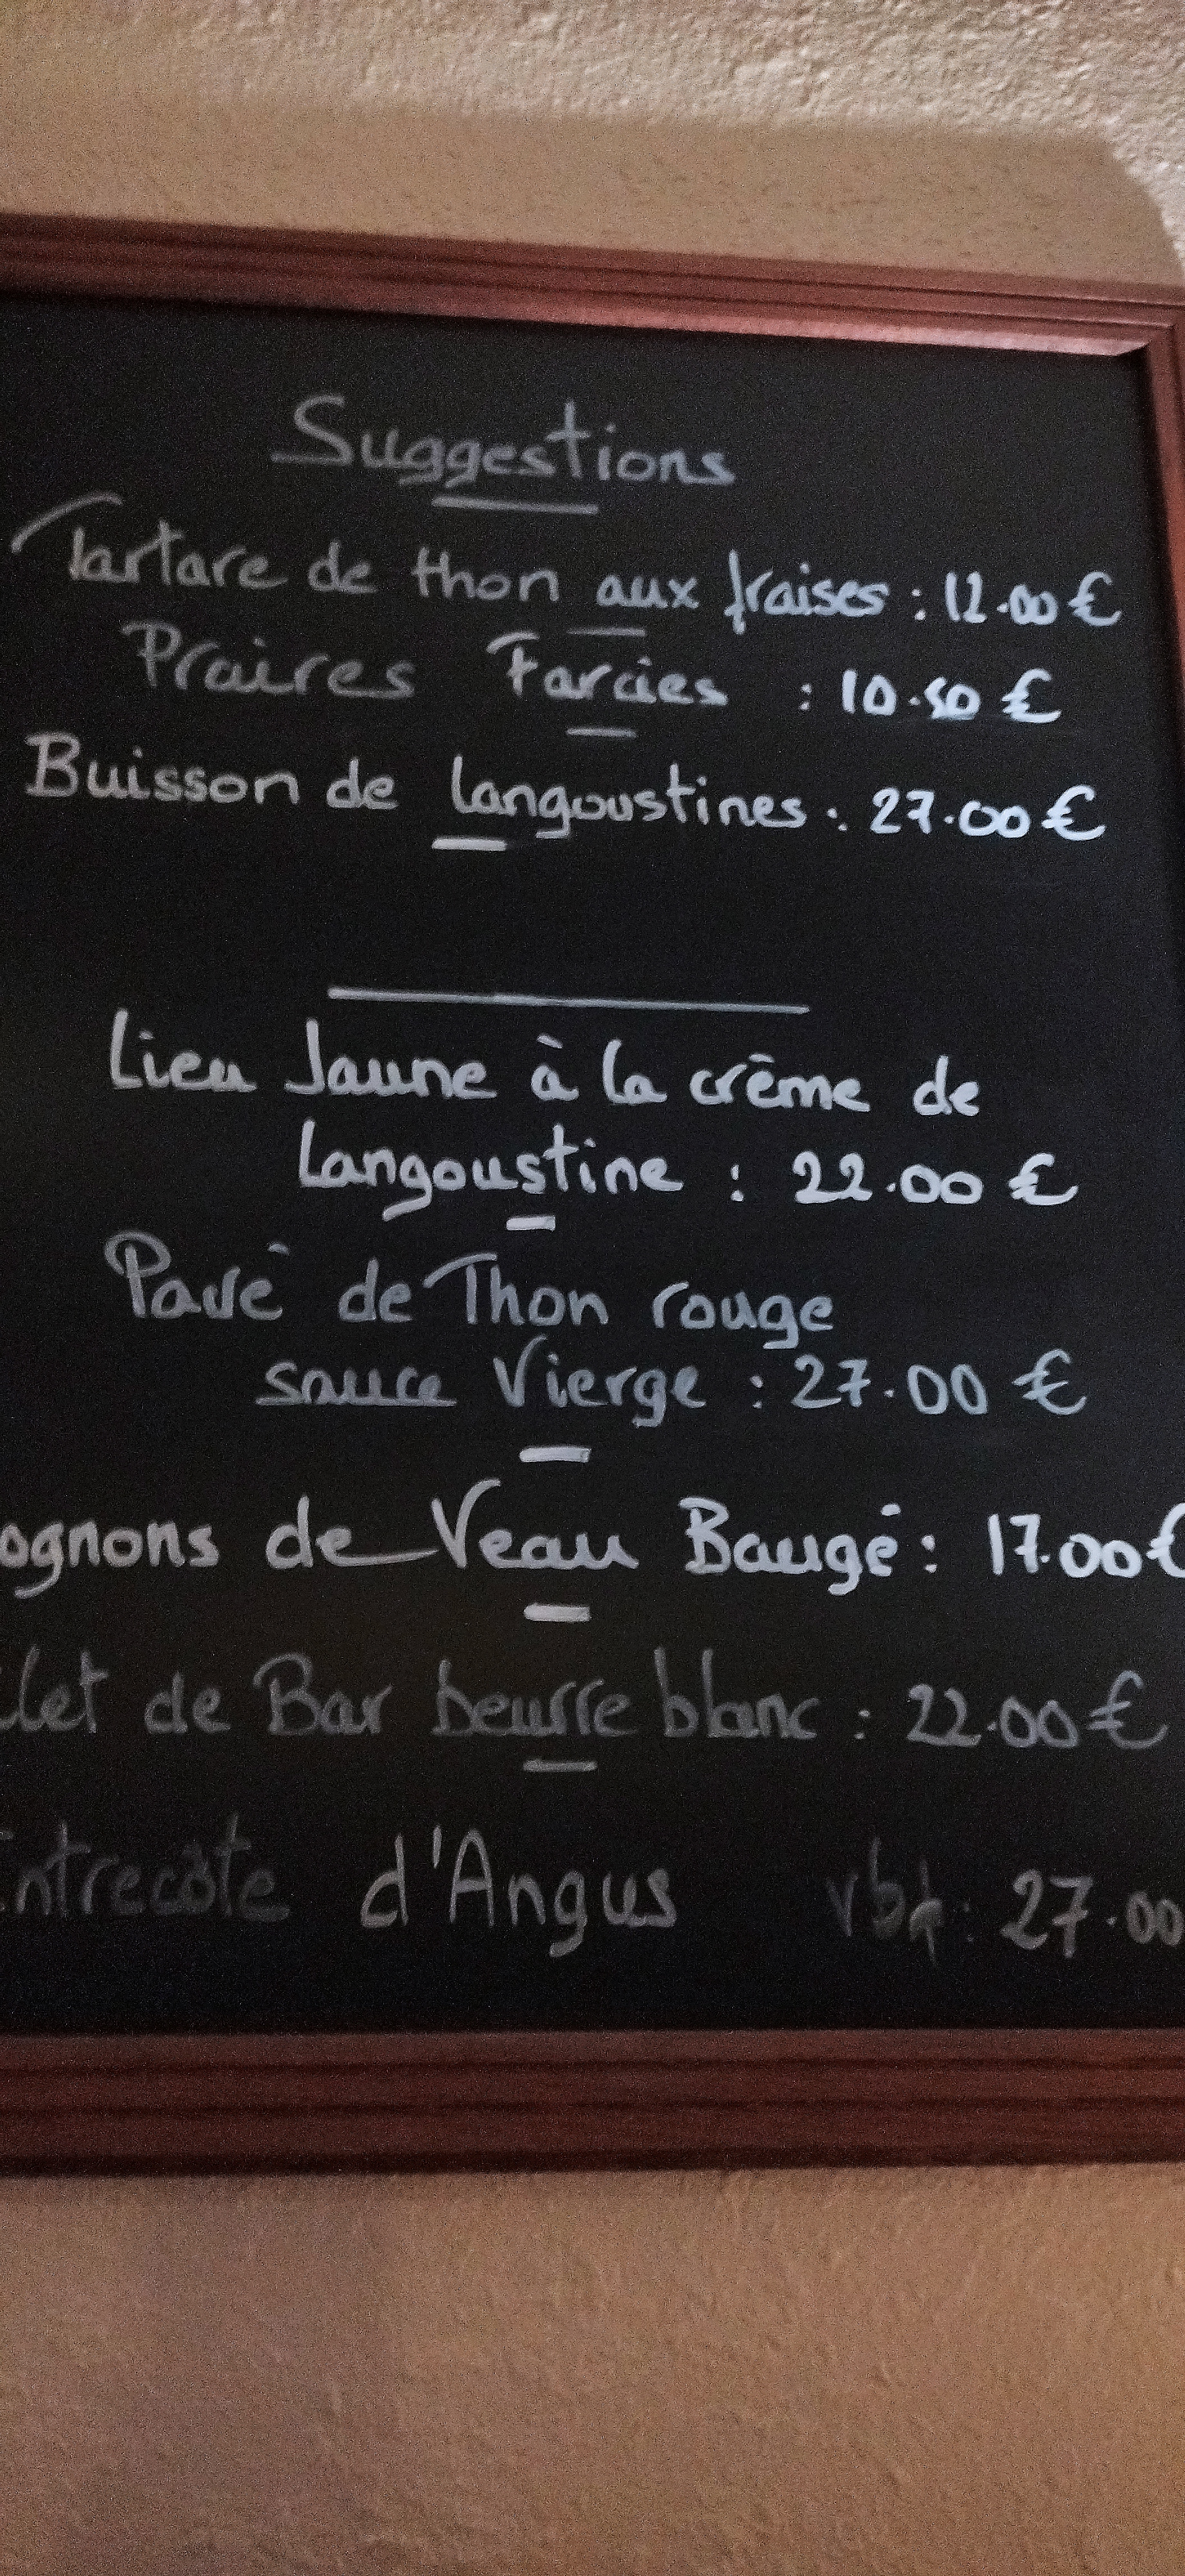 Suggestions
Tartare de thon aux fraises : 12.00 €
Praires Farcies : 10.50 €
Buisson de langoustines : 27.00 €
Lieu Jaune à la crème de
Langoustine : 22.00 €
Pavé de Thon rouge
sauce Vierge : 27.00 €
ognons de Veau Baugé : 17.00 €
let de Bar beurre blanc : 22.00 €
ntrecôte d'Angus : 27.00